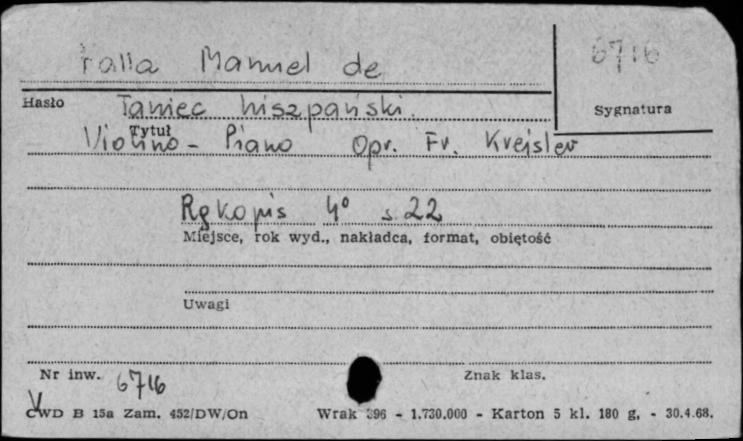 Falla Manuel de
6716
Hasło
Taniec hiszpański.
Sygnatura
Tytuł
Violino - Piano Opr. Fr. Krejsler
Rękopis 4° s. 22
Miejsce, rok wyd., nakładca, format, objętość
Uwagi
Nr inw. 6716
Znak klas.
V
CWD B 15a Zam. 452/DW/On Wrak 396 - 1.730.000 - Karton 5 kl. 180 g. - 30.4.68.